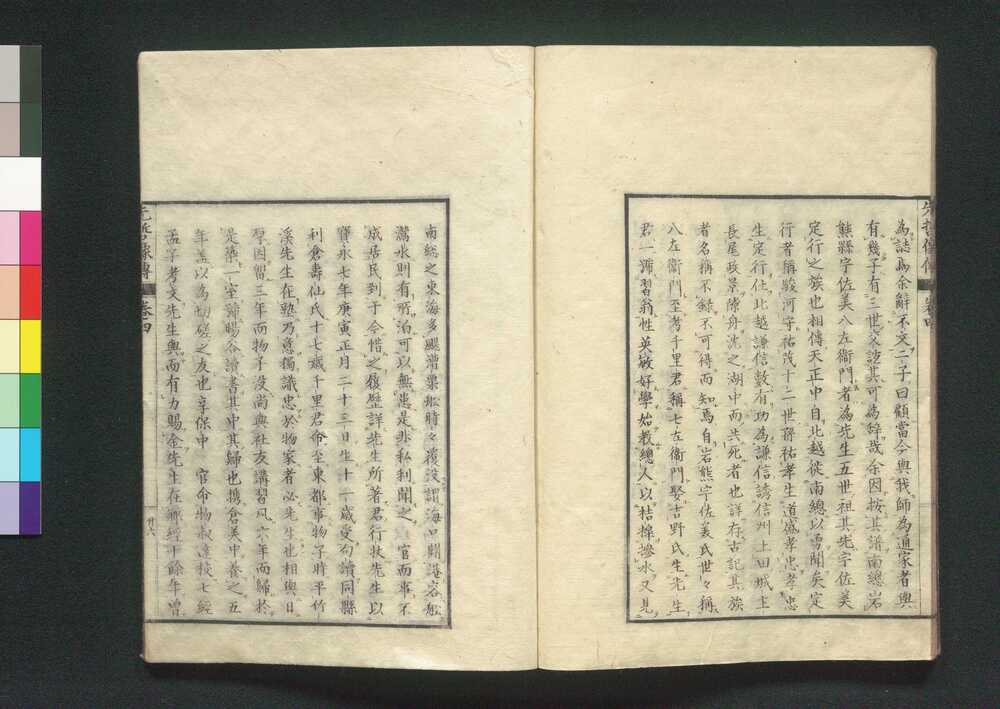 為誌焉余辭不文二子曰顧當今與我師為通家者與
有幾子有三世交誼其可為辭哉余因按其譜南總岩
熊縣宇佐美八左衞門者為先生五世祖其先宇佐美
定行之族也相傳天正中自北越從南總以勇聞矣定
行者稱駿河守祐茂十二世孫祐孝生道盛孝忠孝忠
生定行仕北越謙信數有功為謙信誘信州上田城主
長尾政景陪舟沈之湖中而共死者也詳存古記其族
者名稱不錄不可得而知焉自岩熊宇佐美氏世々稱
八左衞門至考千里君稱七左衞門娶古野氏生先生
君一號習翁性英敏好學始教總人以桔槹摻水又見
南總之東海多颶漕粟舩時々覆没謂海口開港容舩
滿水則有所泊可以無患是非私利聞之 官而事不
成居民到于今惜之履歴詳先生所著君行狀先生以
寶永七年庚寅正月二十三日生十一歲受句讀同縣
利倉壽仙氏十七歲千里君命至東都事物子時平竹
溪先生在塾乃意獨識忠於物家者必先生也相與日
厚因留三年而物子没尚與社友講習凡六年而歸於
是築一室歸賜谷讀書其中其歸也携倉美中養之五
年盖以為切磋之友也享保中 官命物叔達校七經
孟子考文先生與而有力賜金先生在鄕經十餘年增
先哲像傳 卷四